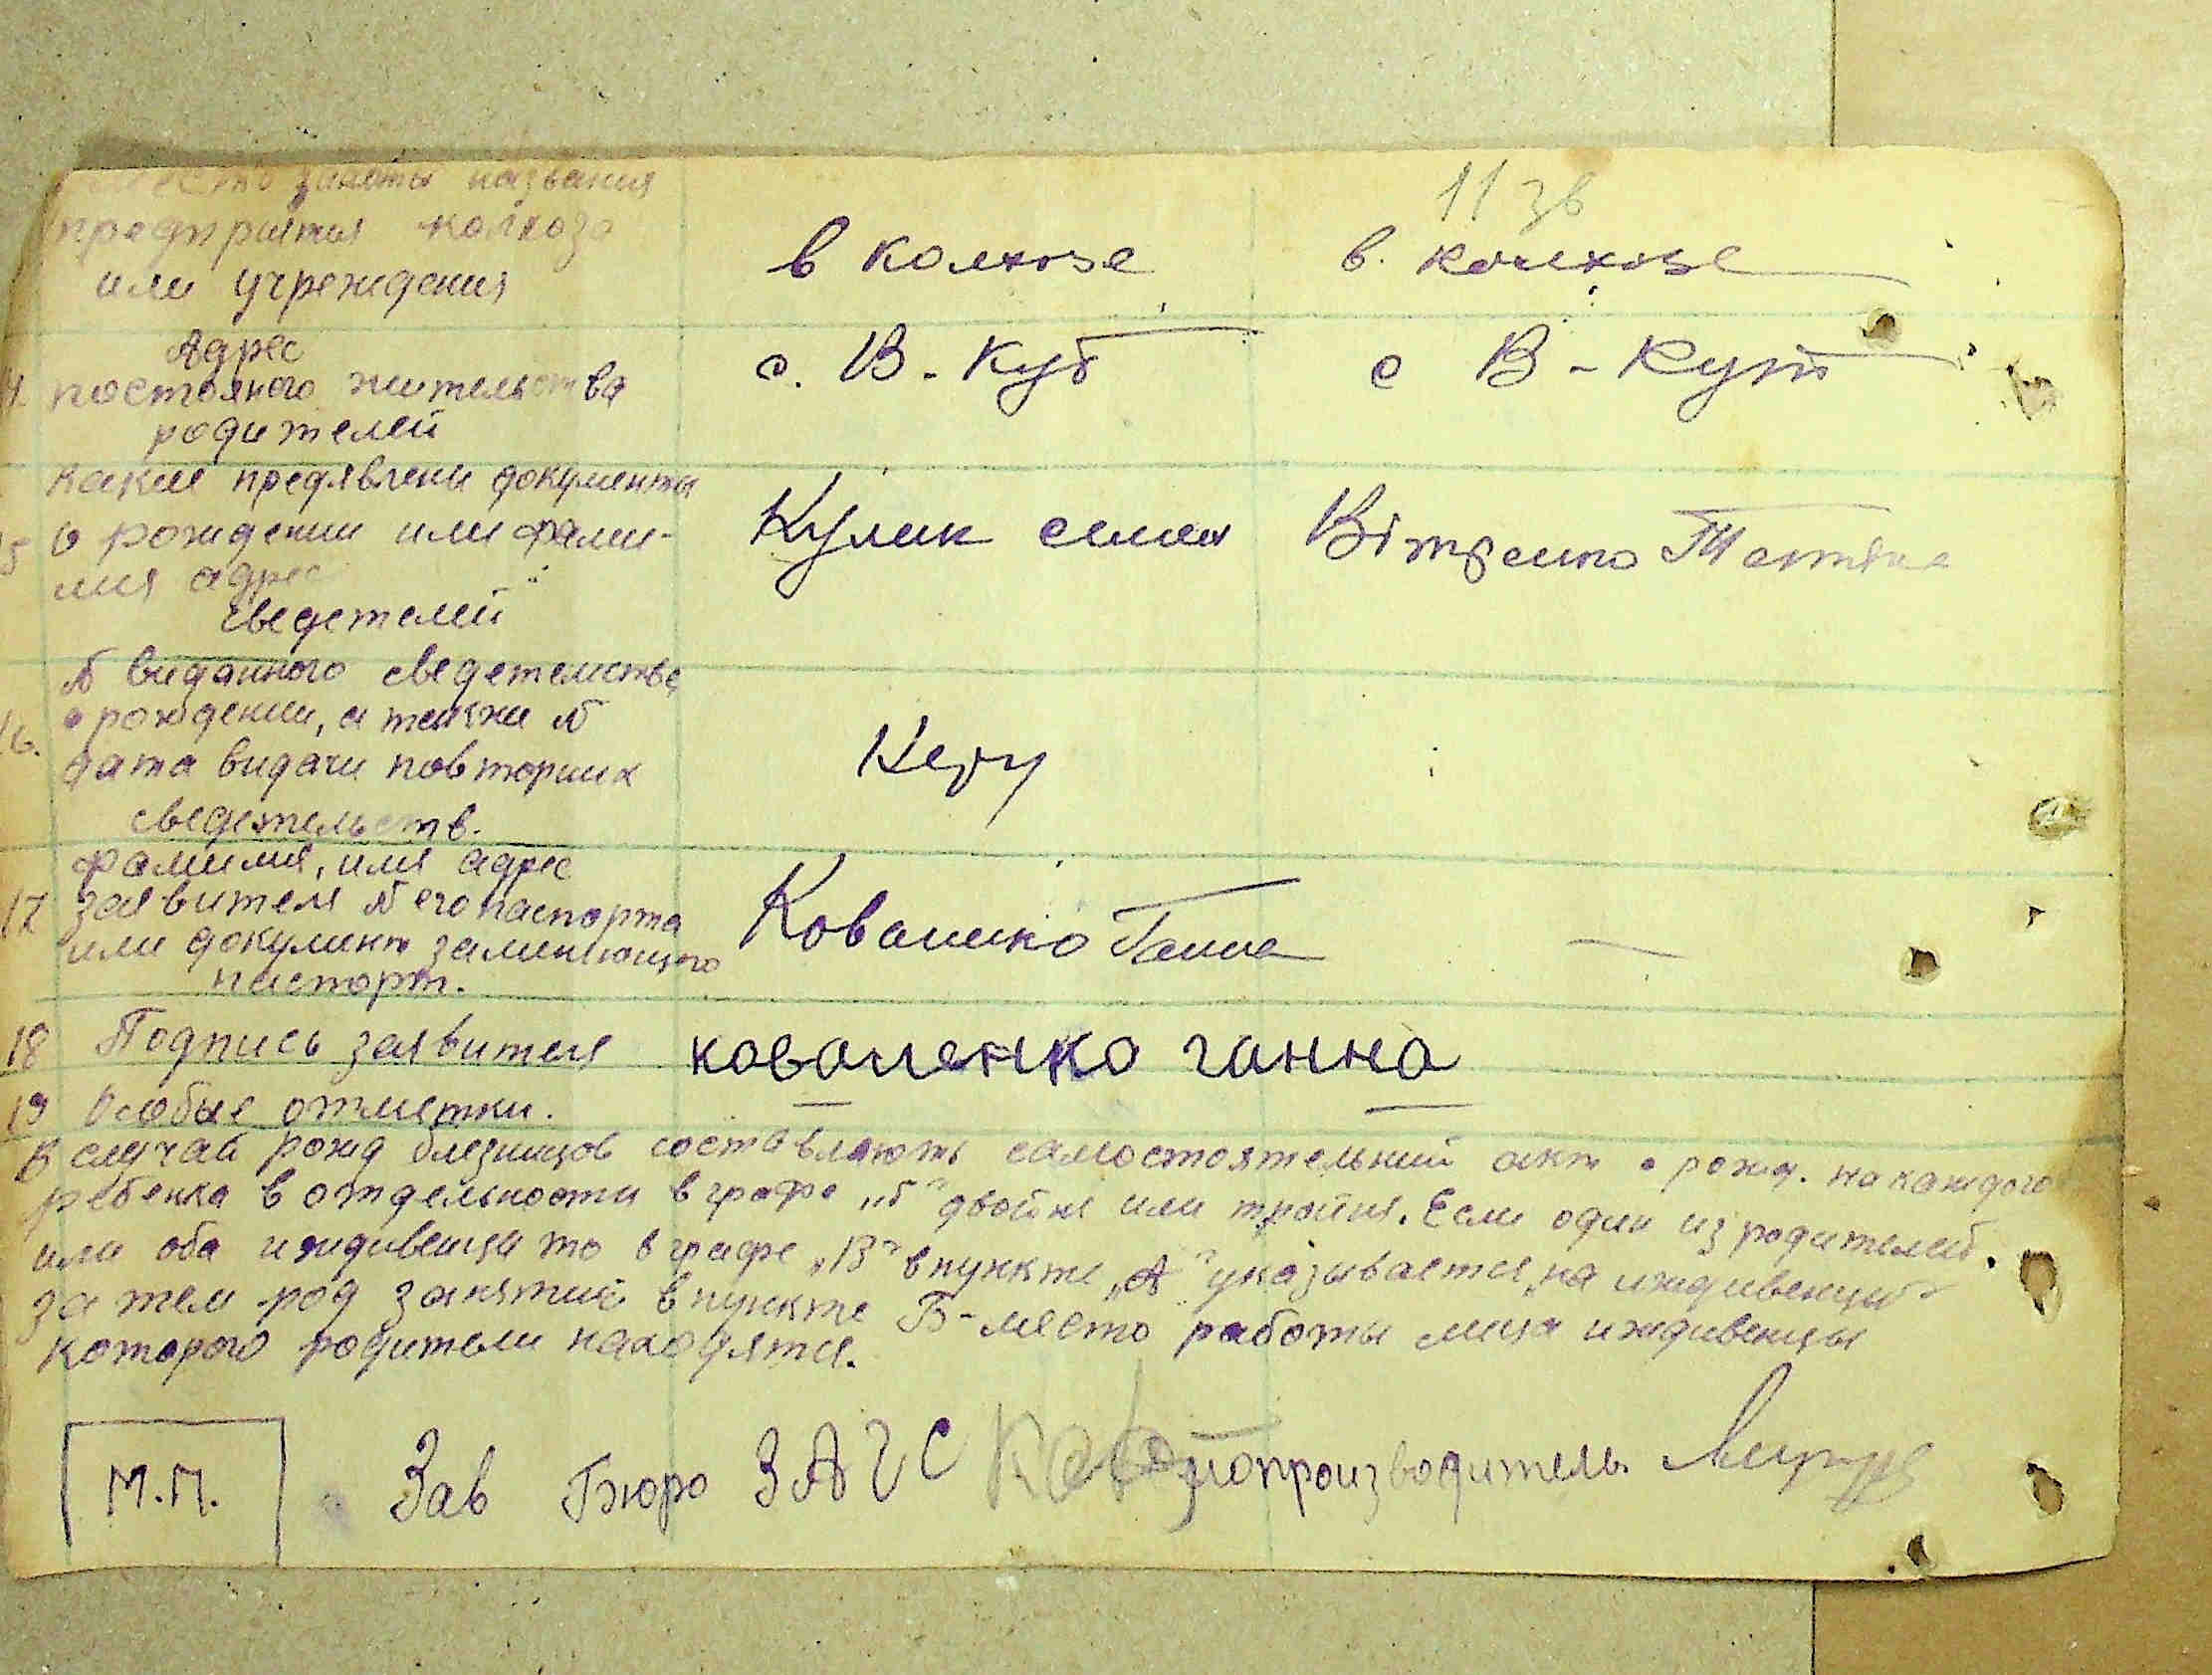 11 зв
заняты названия
предприятия колхоза
или учреждения
в колхозе
в. колхозе
Адрес
постояного жительства
родителей
с. В-Кут
с В-Кут
какие предявлены документы
о рождении или фами-
лия адрес
сведетелей
Кулик
Вітренко Тетяна
№ виданного сведетельства
о рождении, а также №
дата видачи повторних
сведетельств.
16.
фамилия, имя адрес
17 заявителя № его паспорта
или документ заменяющего
паспорт.
Коваленко Ганна —
18 Подпись заявителя коваленко ганна
19 Особые отметки. — —
В случай рожд близнецов составляють самостоятельний акт о рожд. на каждого
ребенка в отдельности в графе „Г" двойня или тройня. Если один из родителей.
или оба иждивенци то в графе „В" в пункте „А" указывается „на иждивенци"
за тем род занятий в пункте Б-место работы лица иждивенцы
которого родители находятся.
М.П. Зав Бюро ЗАГС делопроизводитель